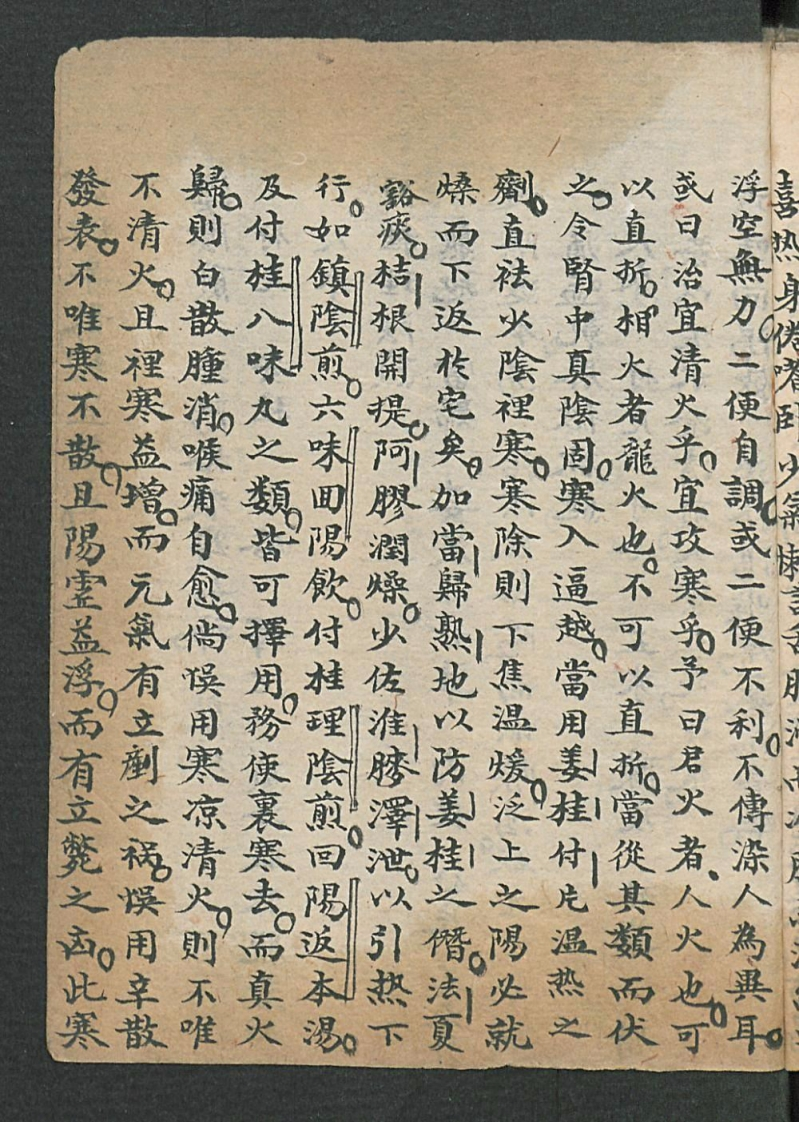 喜热身倦嗜卧少氣懶言舌
浮空無力。二便自調。或二便不利。不傳染人為異耳。
或曰治宜清火乎。宜攻寒乎。予曰君火者、人火也。可
以直折。相火者龍火也。不可以直折。當從其類而伏
之。令腎中真陰固。寒入逼越。當用姜桂付片温热之
劑。直祛少陰裡寒。寒除則下焦温煖。泛上之陽必就
燥而下返於宅矣。加當歸熟地以防姜桂之僭。法夏
豁痰。桔根開提。阿膠潤燥。少佐淮膝澤泄。以引热下
行。如鎮陰煎。六味回陽飲。付桂理陰煎。回陽返本湯。
及付桂八味丸之類。皆可擇用。務使裏寒去。而真火
歸。則白散腫消。喉痛自愈。倘悞用寒凉清火。則不唯
不清火。且裡寒益增。而元氣有立劇之禍。悞用辛散
發表。不唯寒不散。且陽灵益浮。而有立斃之凶。此寒